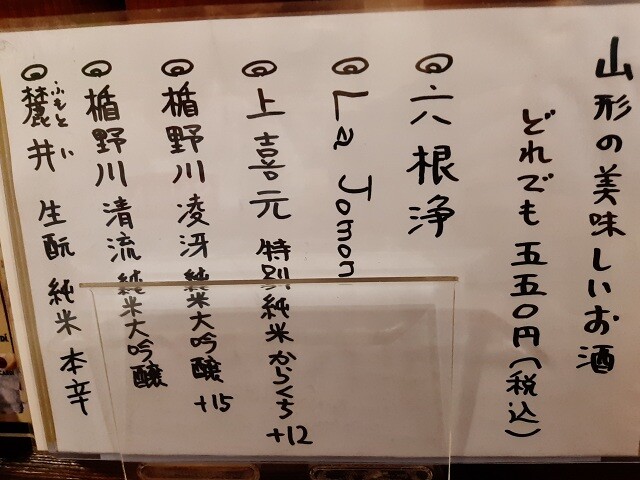 山形の美味しいお酒
どれでも五五〇円(税込)
◎六根浄
◎La Jomon
◎上喜元 特別純米からくち +12
◎楯野川 凌冴 純米大吟醸 +15
◎楯野川 清流 純米大吟醸
◎麓井 ふもとい 生酛 純米 本辛